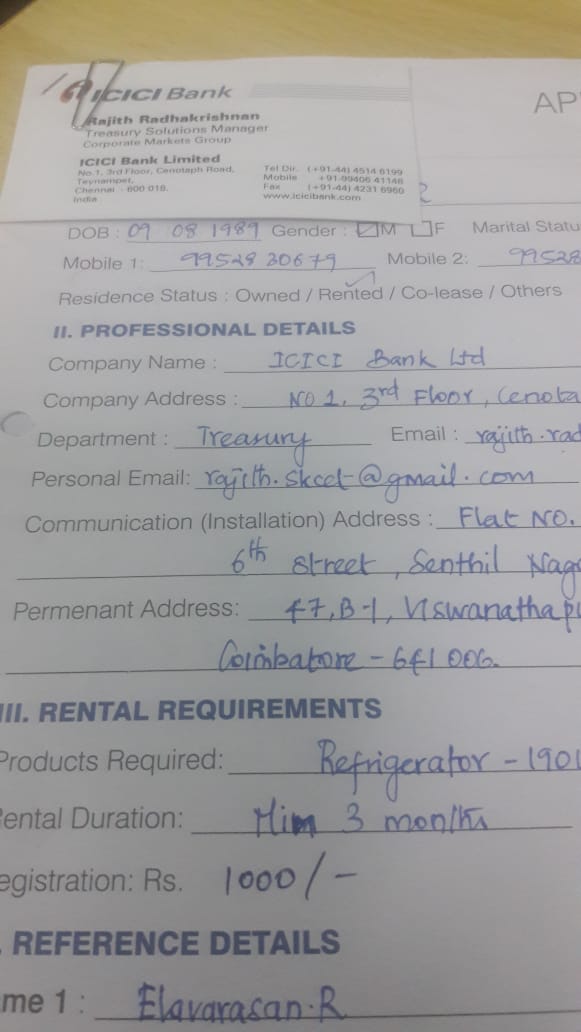 ICICI Bank
Rajith Radhakrishnan
Treasury Solutions Manager
Corporate Markets Group
ICICI Bank Limited
No.1, 3rd Floor, Cenotaph Road,
Teynampet,
Chennai - 600 018.
India
Tel Dir. (+91-44) 4514 6199
Mobile +91-99406 41146
Fax (+91-44) 4231 6960
www.icicibank.com
AP
DOB : 09 08 1989 Gender : M F Marital Statu
Mobile 1: 99528 30679 Mobile 2: 99528
Residence Status : Owned / Rented / Co-lease / Others
II. PROFESSIONAL DETAILS
Company Name : ICICI Bank Ltd
Company Address : NO 1, 3rd Floor, Cenota
Department : Treasury Email : rajith.rad
Personal Email: rajith.skcet@gmail.com
Communication (Installation) Address : Flat NO.
6th street, Senthil Naga
Permenant Address: 47, B-1, Viswanathapu
Coimbatore - 641 006.
III. RENTAL REQUIREMENTS
Products Required: Refrigerator - 190l
ental Duration: Mim 3 months
egistration: Rs. 1000/-
. REFERENCE DETAILS
me 1 : Elavarasan.R